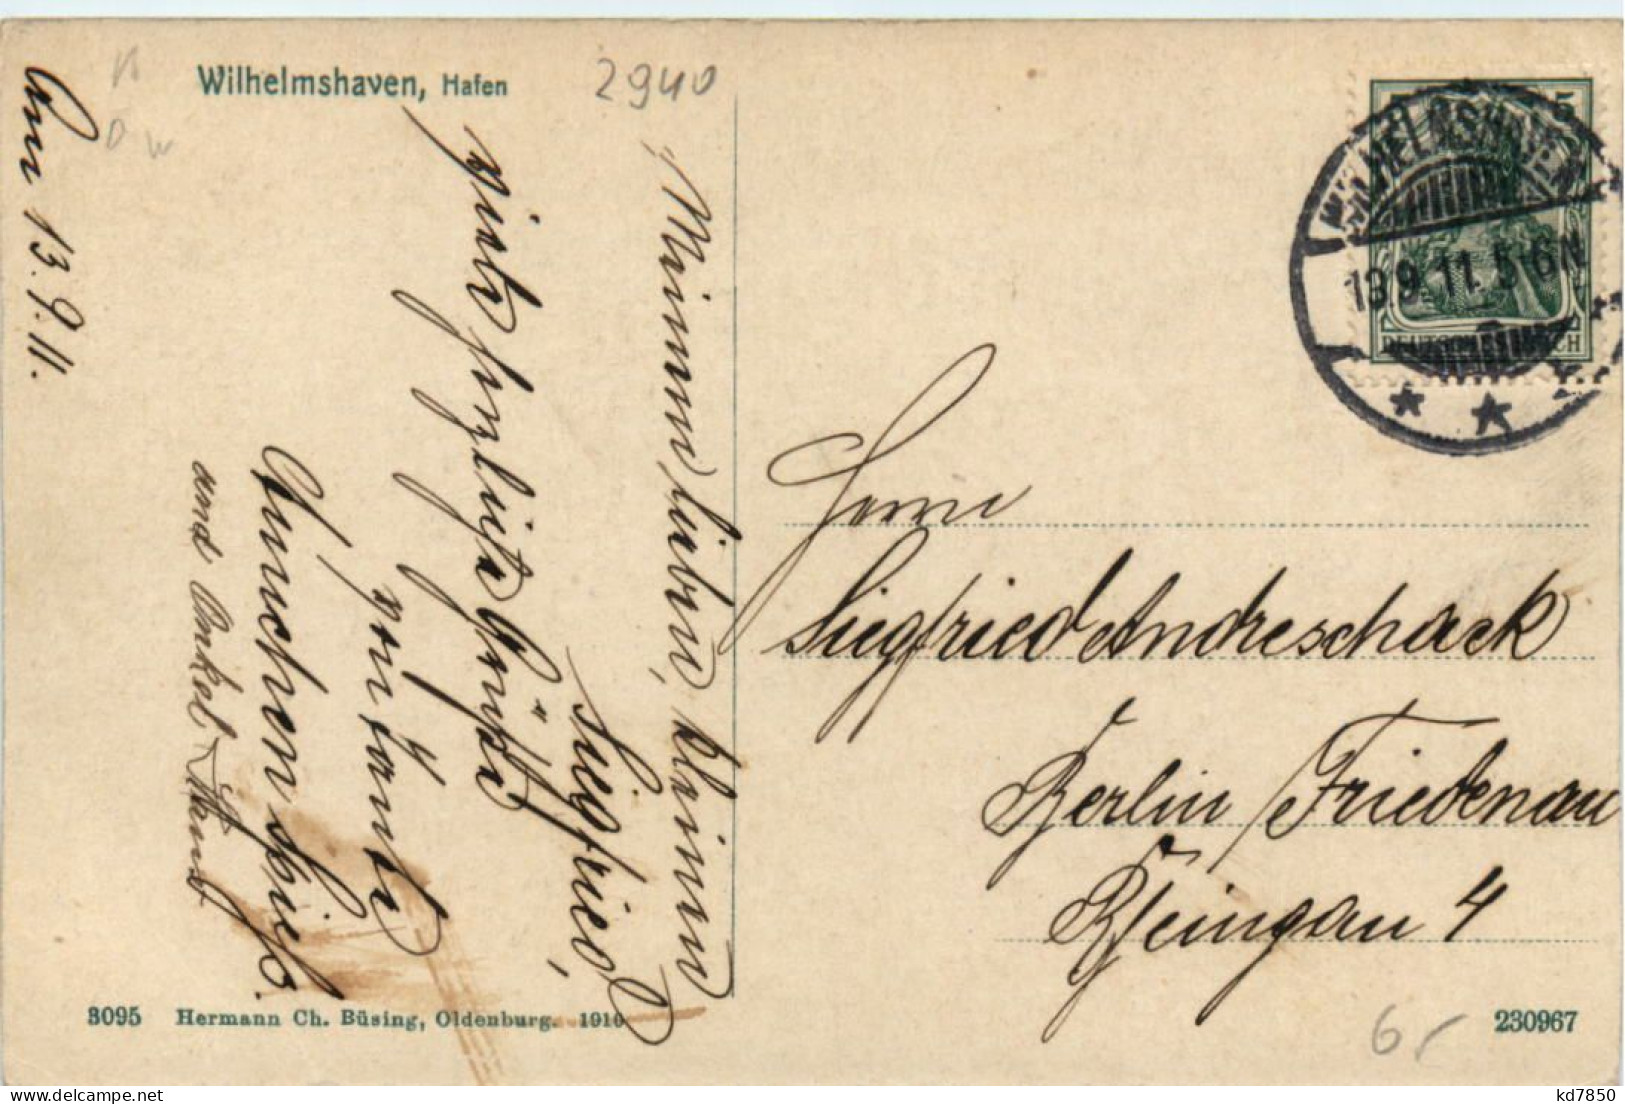 Wilhelmshaven, Hafen
2940
Am 13.9.11.
Meinem lieben, kleinen
Siegfried,
viele herzliche Grüße
von Tante
Annchen
und Onkel
DEUTSCHES REICH
5
WILHELMSHAVEN
13.9.11. 5-6N
Herrn
Siegfried Andreschack
Berlin / Friedenau
Rheingau 4
3095 Hermann Ch. Büsing, Oldenburg. 1910
6,-
230967
kd7850